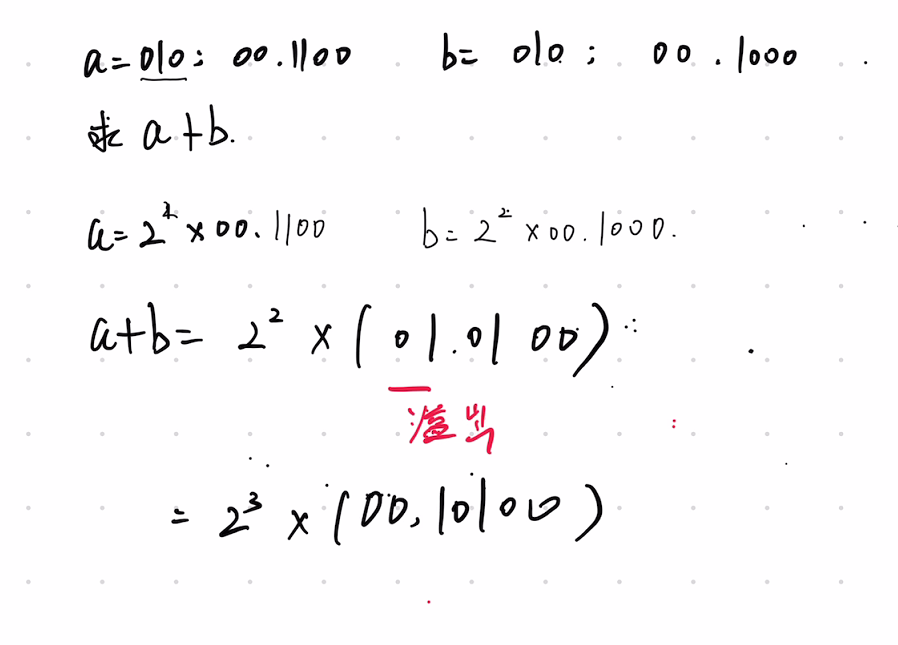 a=010; 00.1100 b=010; 00.1000
求a+b.
a=2²×00.1100 b=2²×00.1000.
a+b=2²×(01.0100)
溢出
=2³×(00.10100)